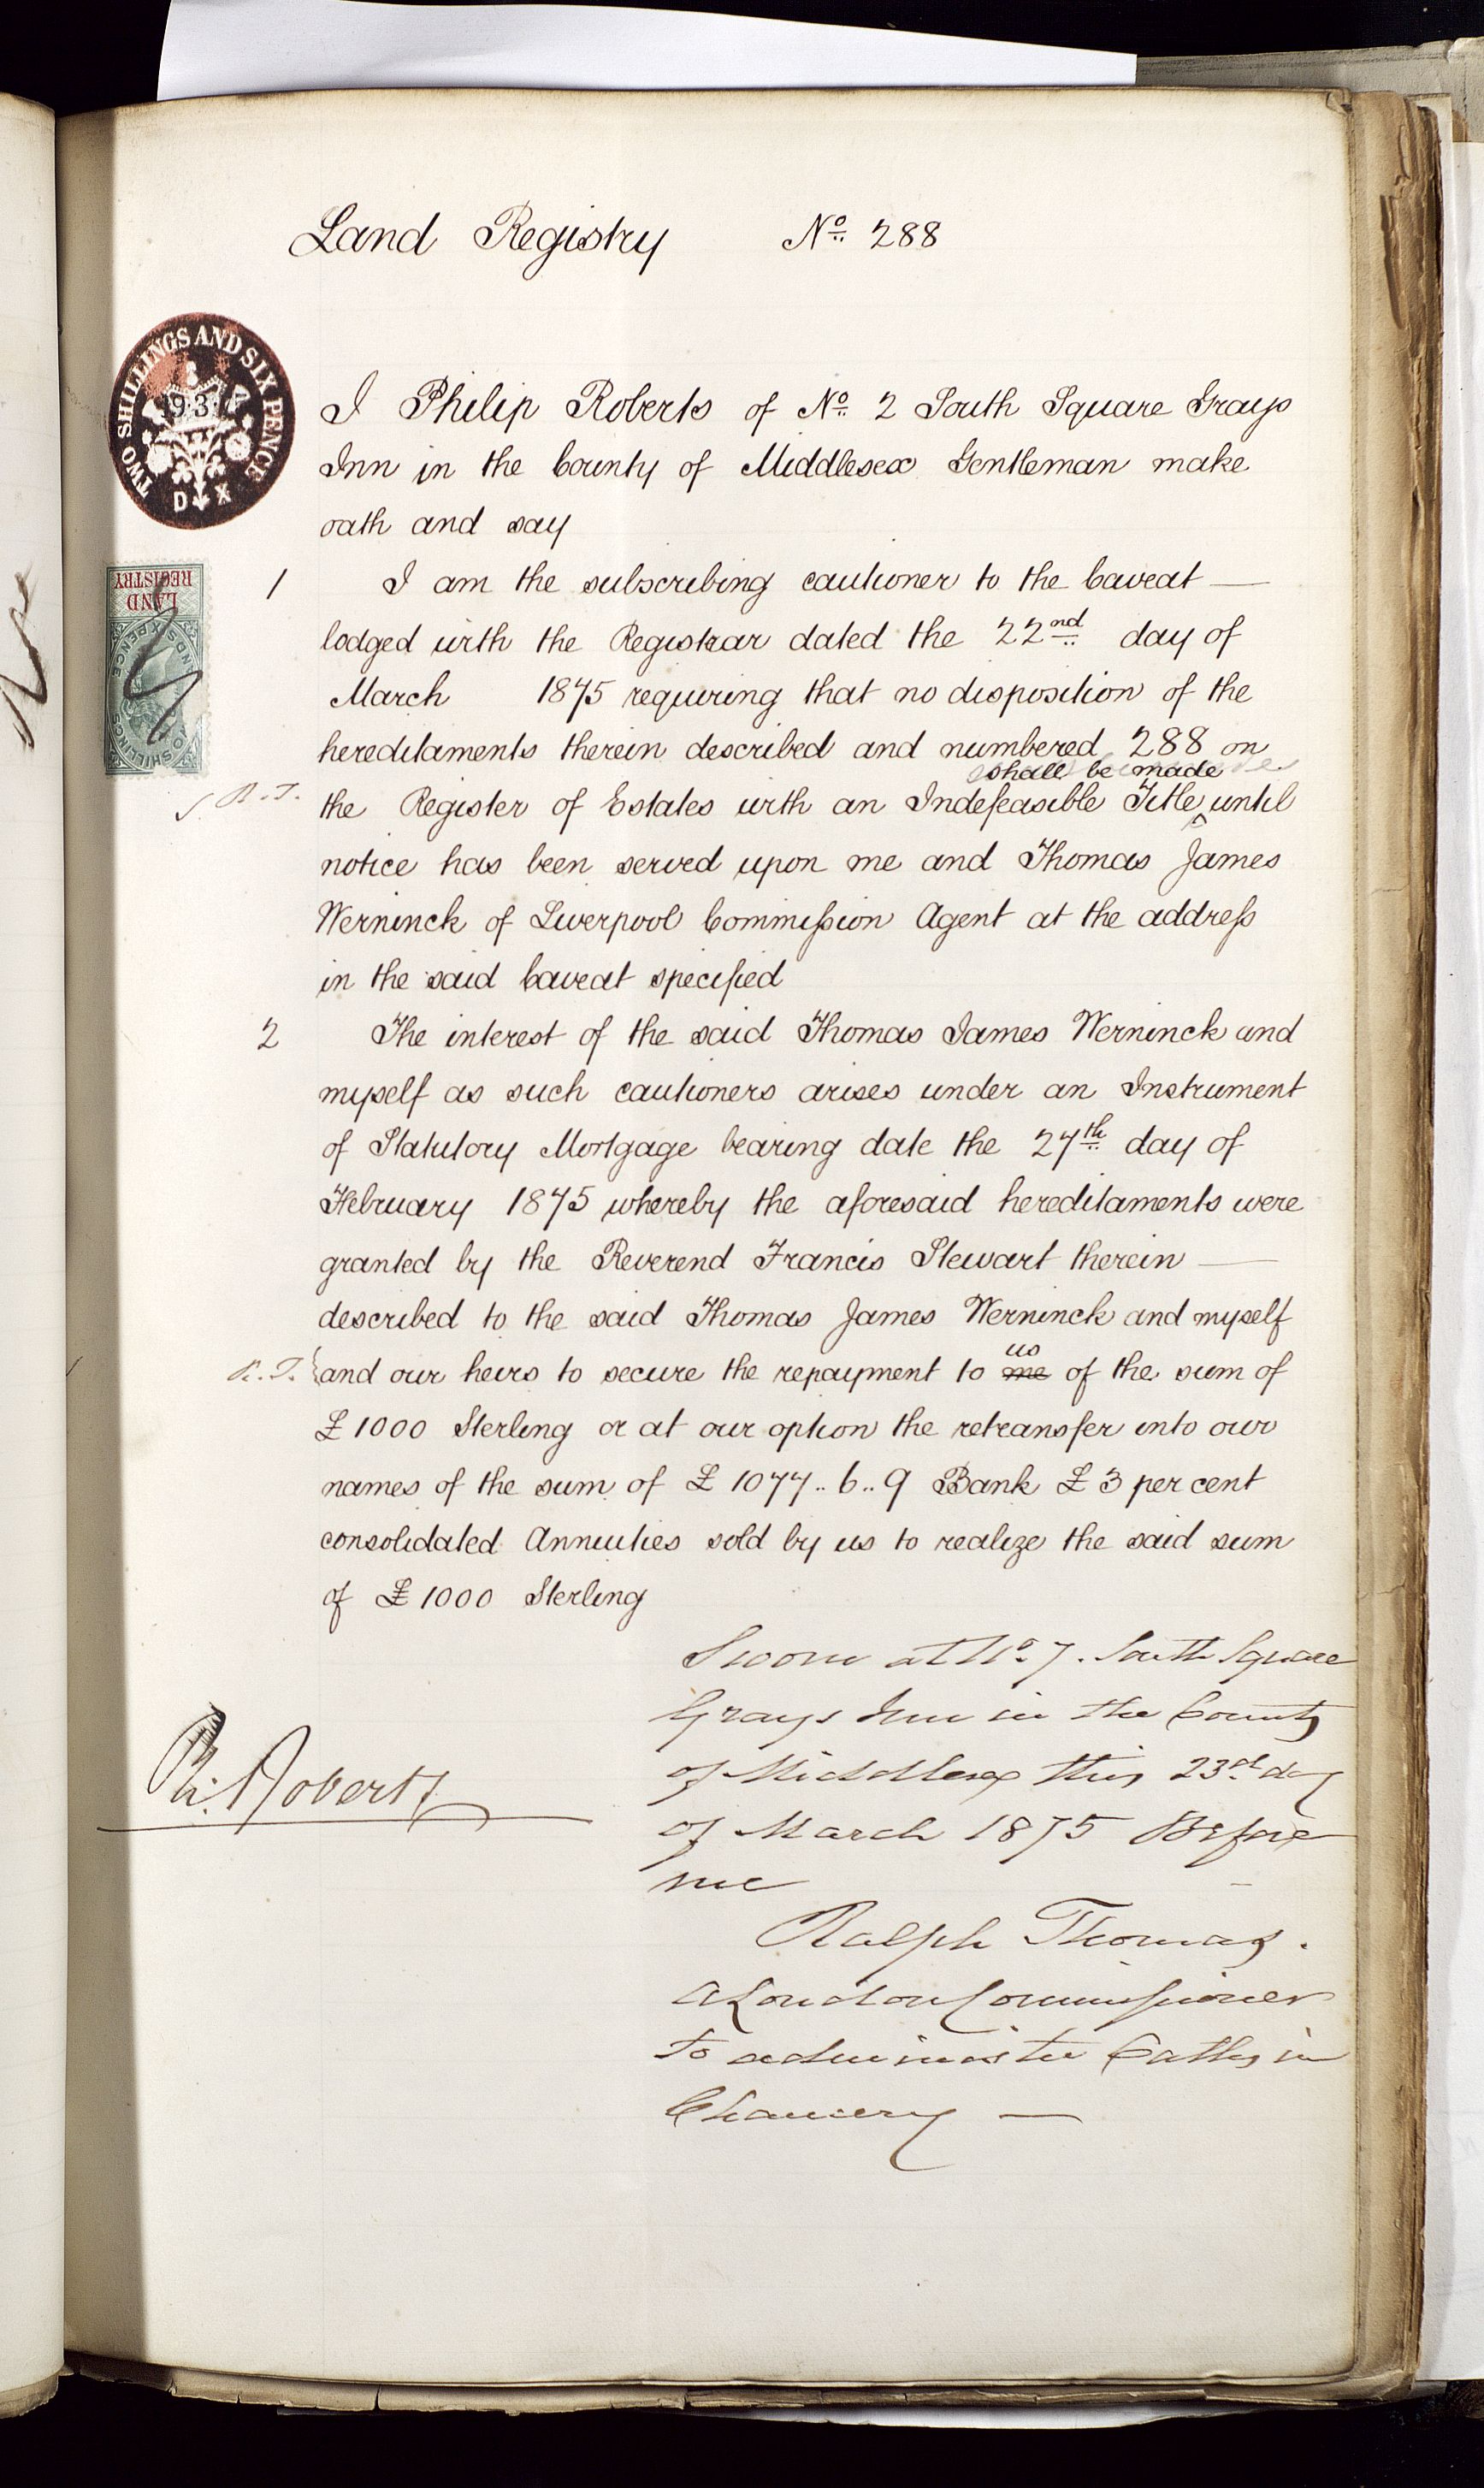 Land Registry No. 288
TWO SHILLINGS AND SIX PENCE
D X
I Philip Roberts of No. 2 South Square Grays
Inn in the County of Middlesex Gentleman make
oath and say
LAND
REGISTRY
1 I am the subscribing cautioner to the Caveat
lodged with the Registrar dated the 22nd day of
March 1875 requiring that no disposition of the
hereditaments therein described and numbered 288 on
shall be made
R.T. the Register of Estates with an Indefeasible Title ^ until
notice has been served upon me and Thomas James
Werninck of Liverpool Commission Agent at the address
in the said Caveat specified
2 The interest of the said Thomas James Werninck and
myself as such cautioners arises under an Instrument
of Statutory Mortgage bearing date the 27th day of
February 1875 whereby the aforesaid hereditaments were
granted by the Reverend Francis Stewart therein
described to the said Thomas James Werninck and myself
us
R.T. and our heirs to secure the repayment to me of the sum of
£1000 Sterling or at our option the retransfer into our
names of the sum of £1077..6..9 Bank £3 per cent
consolidated Annuities sold by us to realize the said sum
of £1000 Sterling
Sworn at No. 7. South Square
Grays Inn in the County
of Middlesex this 23rd day
of March 1875 Before
me
Ph. Roberts
Ralph Thomas.
A London Commissioner
to administer Oaths in
Chancery